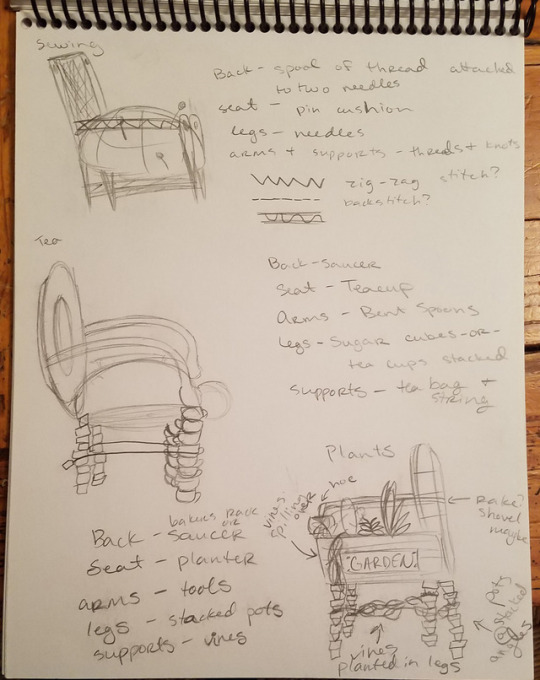 Sewing
Back - spool of thread attached
to two needles
seat - pin cushion
legs - needles
arms + supports - threads + knots
zig-zag stitch?
backstitch?
Tea
Back - saucer
Seat - Teacup
Arms - Bent Spoons
legs - Sugar cubes -or-
tea cups stacked
supports - tea bag +
string
Plants
hoe
vines
spilling
over
rake?
shovel
maybe
bakers rack
or
Back - saucer
Seat - planter
arms - tools
legs - stacked pots
supports - vines
GARDEN
vines
planted in legs
pots
stacked
@
angles